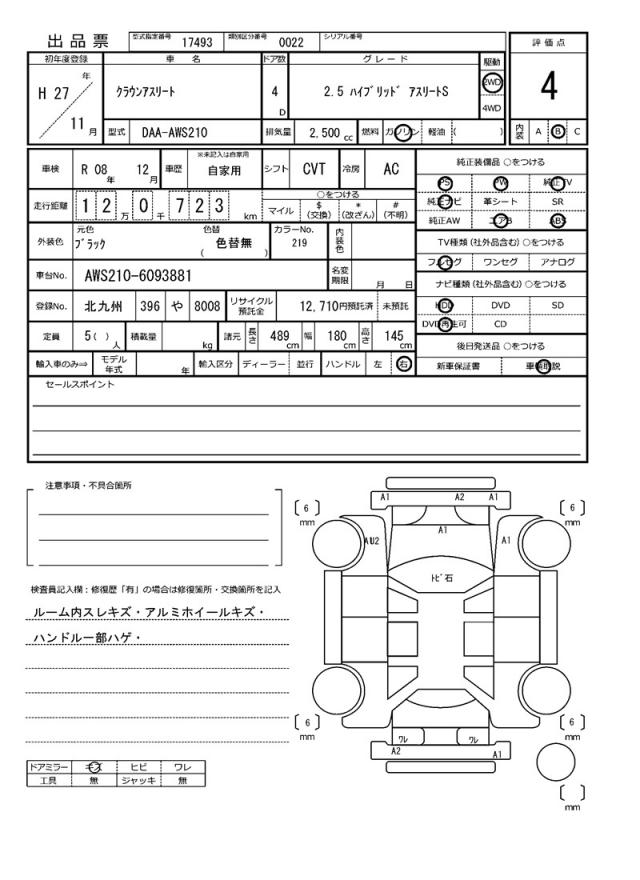 出品票 型式指定番号 17493 類別区分番号 0022 シリアル番号
評価点
4
初年度登録 車名 ドア数 グレード 駆動
H 27 年 11 月 クラウンアスリート 4 D 2.5 ハイブリッド アスリートS 2WD
4WD
型式 DAA-AWS210 排気量 2,500 cc 燃料 ガソリン 軽油 ( ) 内装 A B C
車検 R 08 年 12 月 車歴 ※未記入は自家用 自家用 シフト CVT 冷房 AC
純正装備品 ○をつける
PS PW 純正TV
純正ナビ 革シート SR
純正AW エアB ABS
走行距離 1 2 万 0 千 7 2 3 km ○をつける
マイル $ (交換) * (改ざん) # (不明)
外装色 元色 ブラック 色替 色替無 ( ) カラーNo. 219 内装色
TV種類 (社外品含む) ○をつける
フルセグ ワンセグ アナログ
車台No. AWS210-6093881 名変期限 月 日
ナビ種類 (社外品含む) ○をつける
HDD DVD SD
DVD再生可 CD
登録No. 北九州 396 や 8008 リサイクル預託金 12,710円預託済 未預託
定員 5( ) 人 積載量 kg 諸元 長さ 489 cm 幅 180 cm 高さ 145 cm
後日発送品 ○をつける
新車保証書 車輌取説
輸入車のみ⇒ モデル年式 年 輸入区分 ディーラー 並行 ハンドル 左 右
セールスポイント
注意事項・不具合箇所
検査員記入欄：修復歴「有」の場合は修復箇所・交換箇所を記入
ルーム内スレキズ・アルミホイールキズ・
ハンドル一部ハゲ・
ドアミラー キズ ヒビ ワレ
工具 無 ジャッキ 無
A1 A2 A1
6 mm A1 6 mm
AU2 A1
トビ石
6 mm ワレ ワレ 6 mm
A2 A1
mm